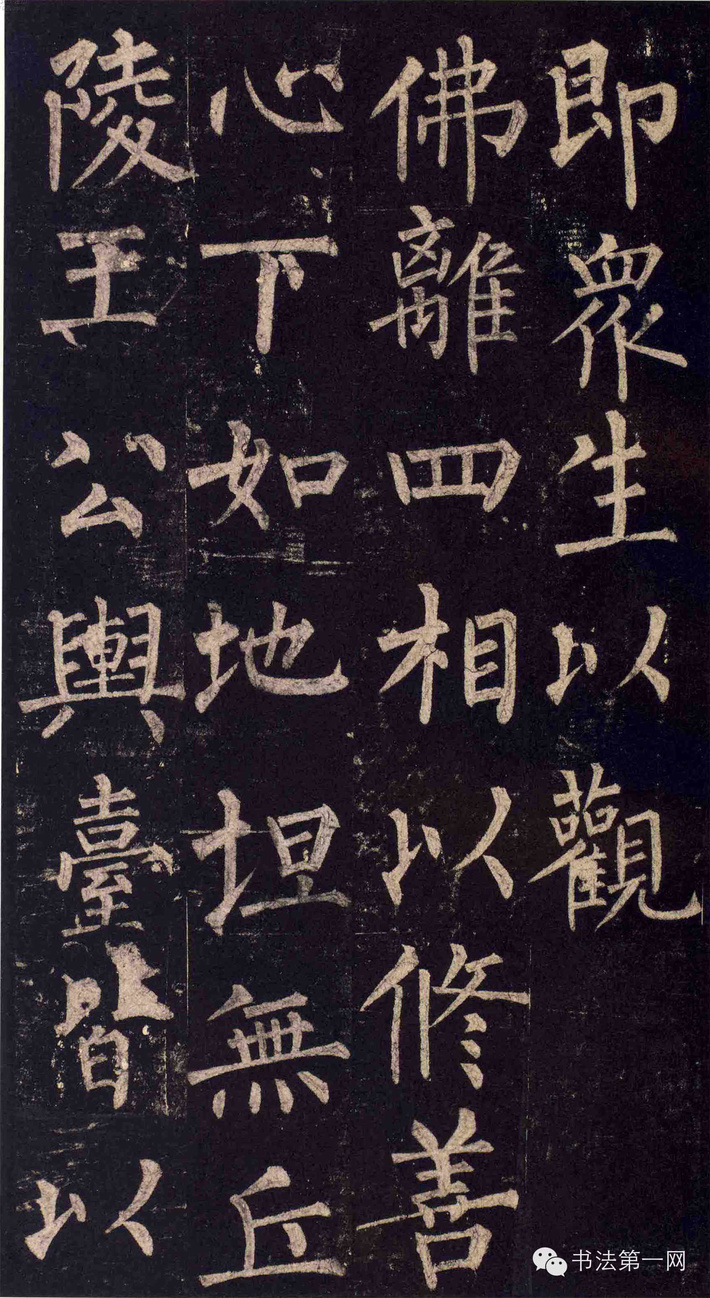 即衆生以觀
佛離四相以修善
心下如地坦無丘
陵王公輿臺皆以
书法第一网